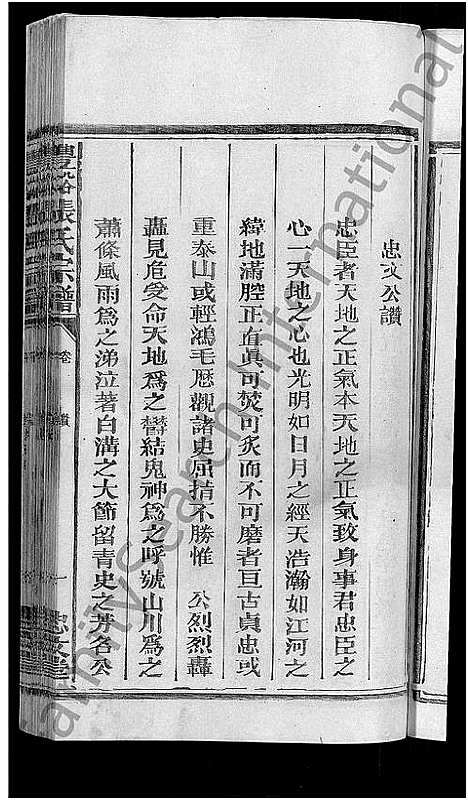 忠文公讚
忠臣者天地之正氣本天地之正氣致身事君忠臣之
心一天地之心也光明如日月之經天浩瀚如江河之
緯地滿腔正血眞可焚可炙而不可磨者亘古貞忠或
重泰山或輕鴻毛歷觀諸史屈指不勝惟 公烈烈轟
轟見危受命天地爲之鬱結鬼神爲之呼號山川爲之
蕭條風雨爲之涕泣著白溝之大節留青史之芳名公
豐谿張氏宗譜 卷 讚 一 忠文堂
FamilySearch International